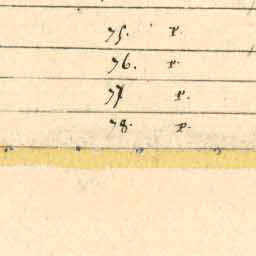 75. p.
76. p.
77 p.
78. p.